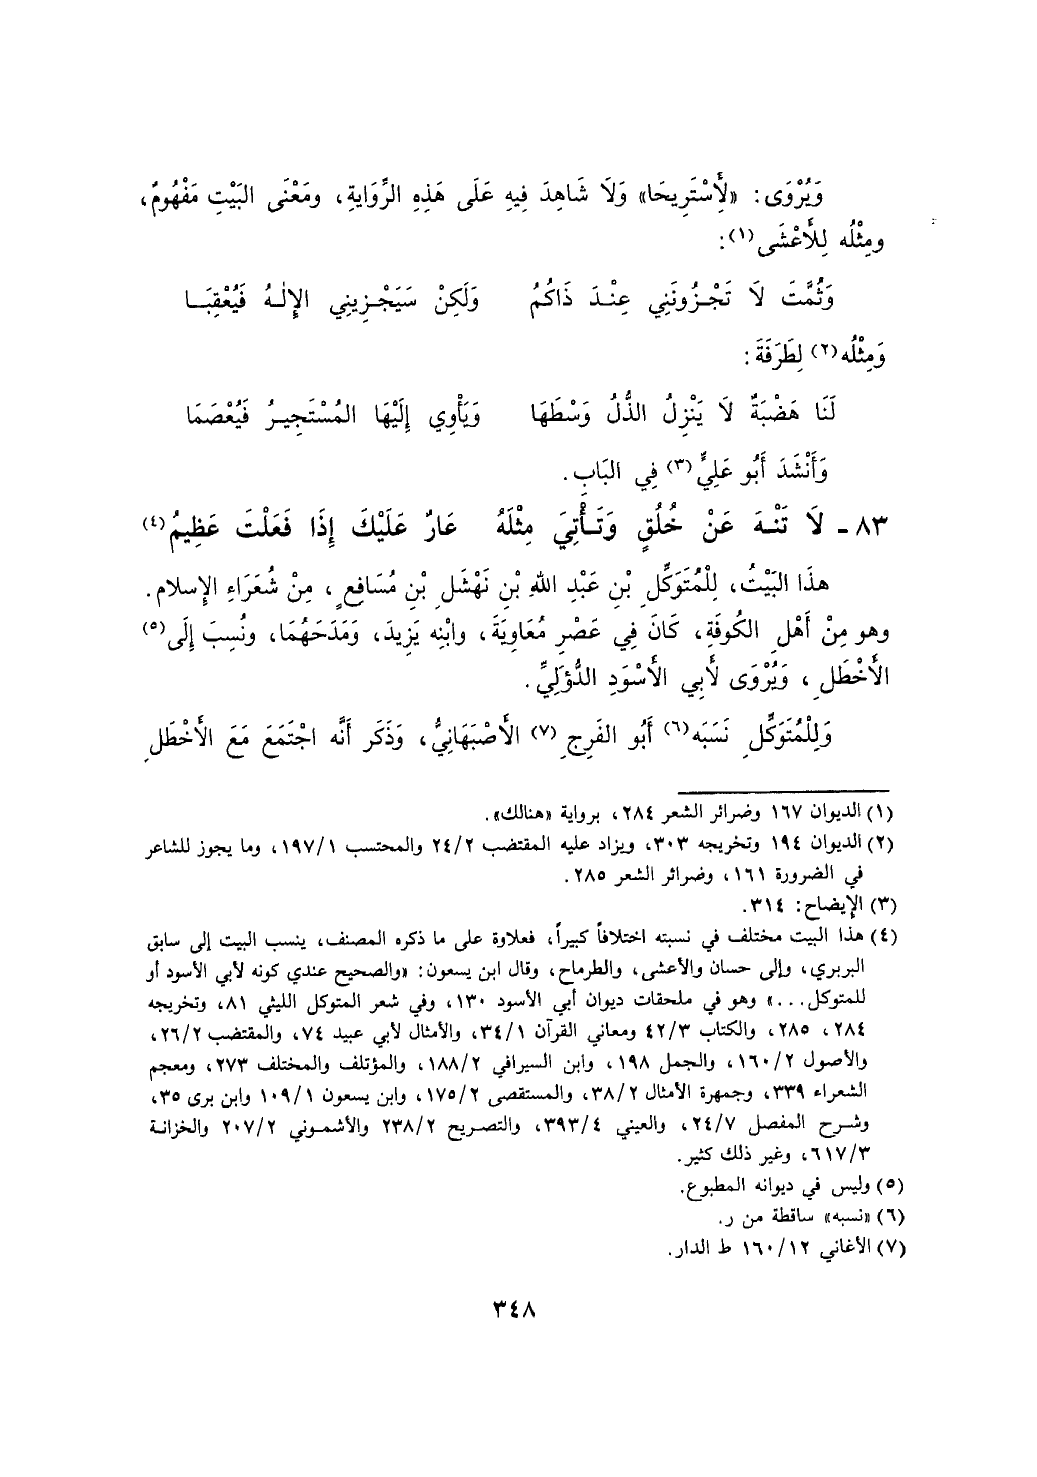 وَيُرْوَى: «لِأَسْتَرِيحَا» وَلَا شَاهِدَ فِيهِ عَلَى هَذِهِ الرِّوَايةِ، ومَعْنَى البَيْتِ مَفْهُومٌ،
ومِثْلُه لِلأَعْشَى(١):
وَثُمَّتَ لَا تَجْـزُونَنِي عِنْـدَ ذَاكُمُ وَلَكِنْ سَيَجْـزِينِي الإِلٰـهُ فَيُعْقِبَـا
وَمِثْلُه(٢) لِطَرَفَةَ:
لَنَا هَضْبَةٌ لَا يَنْزِلُ الذُّلُ وَسْطَهَا وَيَأْوِي إِلَيْهَا المُسْتَجِيـرُ فَيُعْصَمَا
وَأَنْشَدَ أَبُو عَلِيٍّ(٣) فِي البَابِ.
٨٣ - لَا تَنْـهَ عَنْ خُلُقٍ وَتَـأْتِيَ مِثْلَهُ عَارٌ عَلَيْكَ إِذَا فَعَلْتَ عَظِيمُ(٤)
هذَا البَيْتُ، لِلْمُتَوَكِّلِ بْنِ عَبْدِ اللهِ بْنِ نَهْشَلِ بْنِ مُسَافِعٍ، مِنْ شُعَرَاءِ الإِسلام.
وهو مِنْ أَهْلِ الكُوفَةِ، كَانَ فِي عَصْرِ مُعَاوِيَةَ، وابْنِه يَزِيدَ، وَمَدَحَهُمَا، ونُسِبَ إِلَى(٥)
الأَخْطَلِ، وَيُرْوَى لأَبِي الأَسْوَدِ الدُّؤَلِيِّ.
وَلِلْمُتَوَكِّلِ نَسَبَه(٦) أَبُو الفَرِجِ(٧) الأَصْبَهَانِيُّ، وَذَكَر أَنَّه اجْتَمَعَ مَعَ الأَخْطَلِ
(١) الديوان ١٦٧ وضرائر الشعر ٢٨٤، برواية «هنالك».
(٢) الديوان ١٩٤ وتخريجه ٣٠٣، ويزاد عليه المقتضب ٢٤/٢ والمحتسب ١٩٧/١، وما يجوز للشاعر
في الضرورة ١٦١، وضرائر الشعر ٢٨٥.
(٣) الإيضاح: ٣١٤.
(٤) هذا البيت مختلف في نسبته اختلافاً كبيراً، فعلاوة على ما ذكره المصنف، ينسب البيت إلى سابق
البربري، وإلى حسان والأعشى، والطرماح، وقال ابن يسعون: «والصحيح عندي كونه لأبي الأسود أو
للمتوكل...» وهو في ملحقات ديوان أبي الأسود ١٣٠، وفي شعر المتوكل الليثي ٨١، وتخريجه
٢٨٤، ٢٨٥، والكتاب ٤٢/٣ ومعاني القرآن ٣٤/١، والأمثال لأبي عبيد ٧٤، والمقتضب ٢٦/٢،
والأصول ١٦٠/٢، والجمل ١٩٨، وابن السيرافي ١٨٨/٢، والمؤتلف والمختلف ٢٧٣، ومعجم
الشعراء ٣٣٩، وجمهرة الأمثال ٣٨/٢، والمستقصى ١٧٥/٢، وابن يسعون ١٠٩/١ وابن برى ٣٥،
وشـرح المفصل ٢٤/٧، والعيني ٣٩٣/٤، والتصريح ٢٣٨/٢ والأشمـوني ٢٠٧/٢ والخزانـة
٦١٧/٣، وغير ذلك كثير.
(٥) وليس في ديوانه المطبوع.
(٦) «نسبه» ساقطة من ر.
(٧) الأغاني ١٦٠/١٢ ط الدار.
٣٤٨